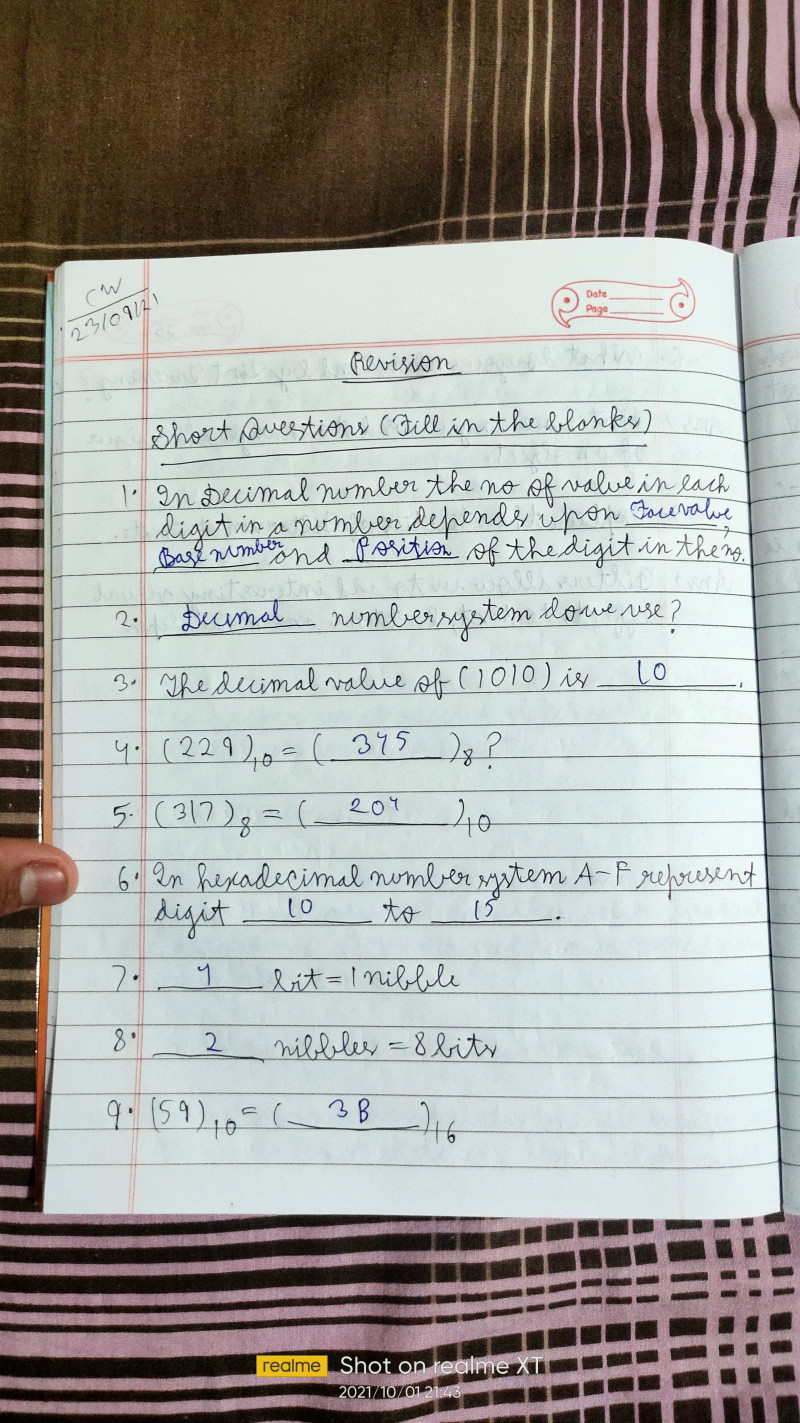 CW
23/09/21
Date
Page
Revision
Short Questions (Fill in the blanks)
1. In Decimal number the no of value in each
digit in a number depends upon Face value,
Base number and Position of the digit in the no.
2. Decimal number system do we use?
3. The decimal value of (1010) is 10.
4. (229)10 = (345)8?
5. (317)8 = (204)10
6. In hexadecimal number system A-F represent
digit 10 to 15.
7. 4 bit = 1 nibble
8. 2 nibbles = 8 bits
9. (59)10 = (3B)16
realme Shot on realme XT
2021/10/01 21:43